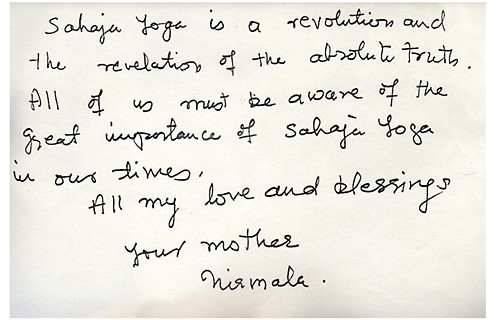 Sahaja Yoga is a revolution and
the revelation of the absolute truth.
All of us must be aware of the
great importance of Sahaja Yoga
in our times.
All my love and blessings
Your mother
Nirmala.